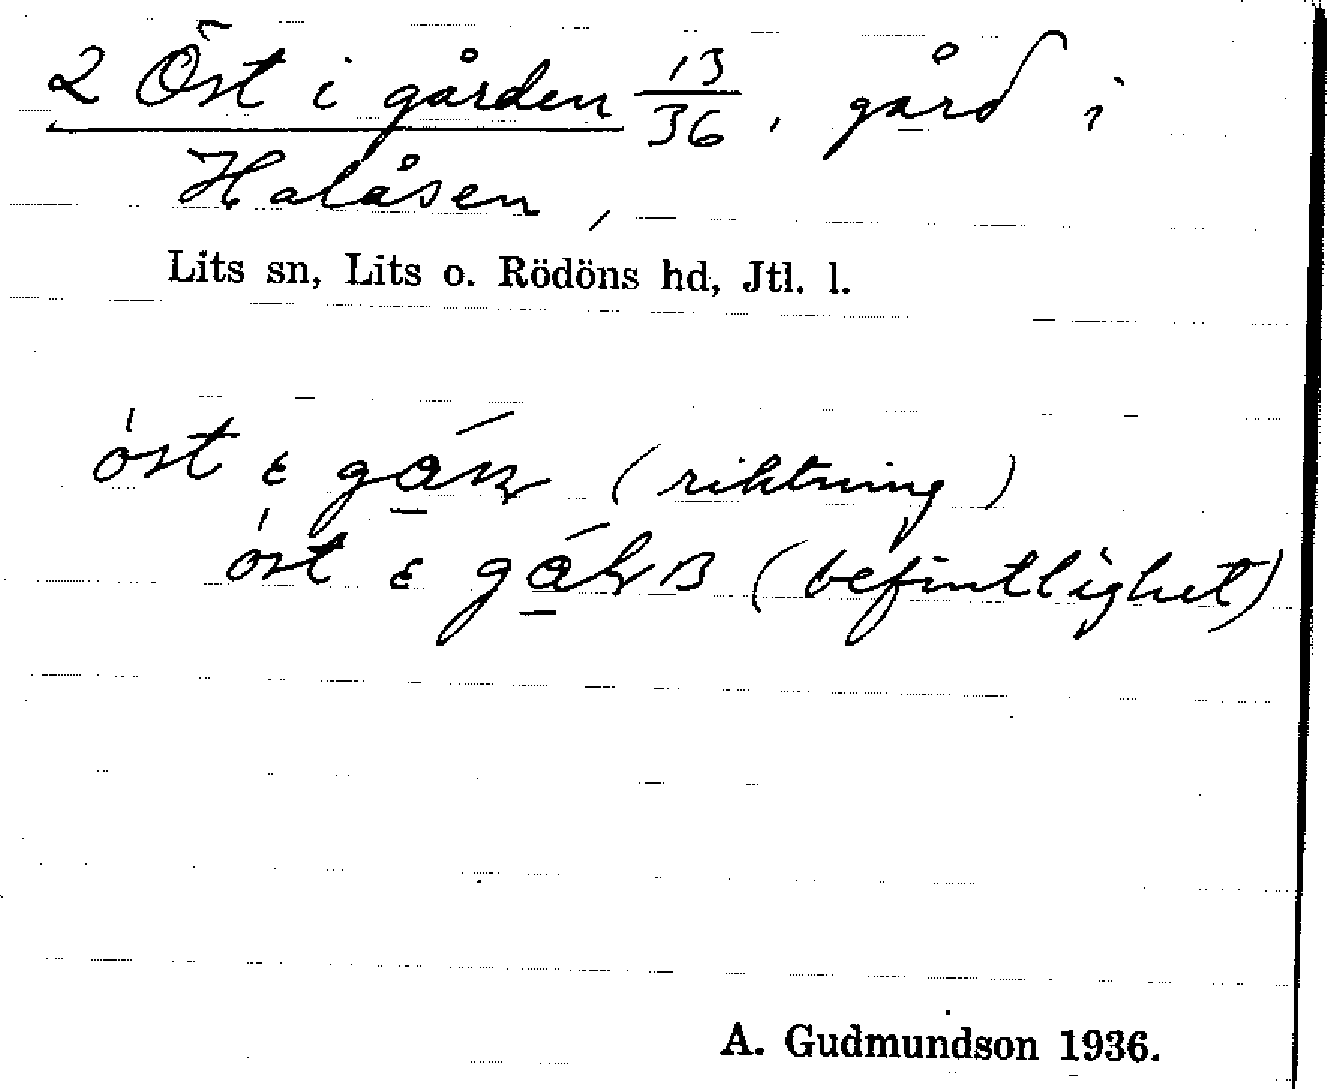 2 Öst i gården 13/36, gård i
Halåsen,
Lits sn, Lits o. Rödöns hd, Jtl. l.
öst (riktning)
öst (befintlighet)
A. Gudmundson 1936.